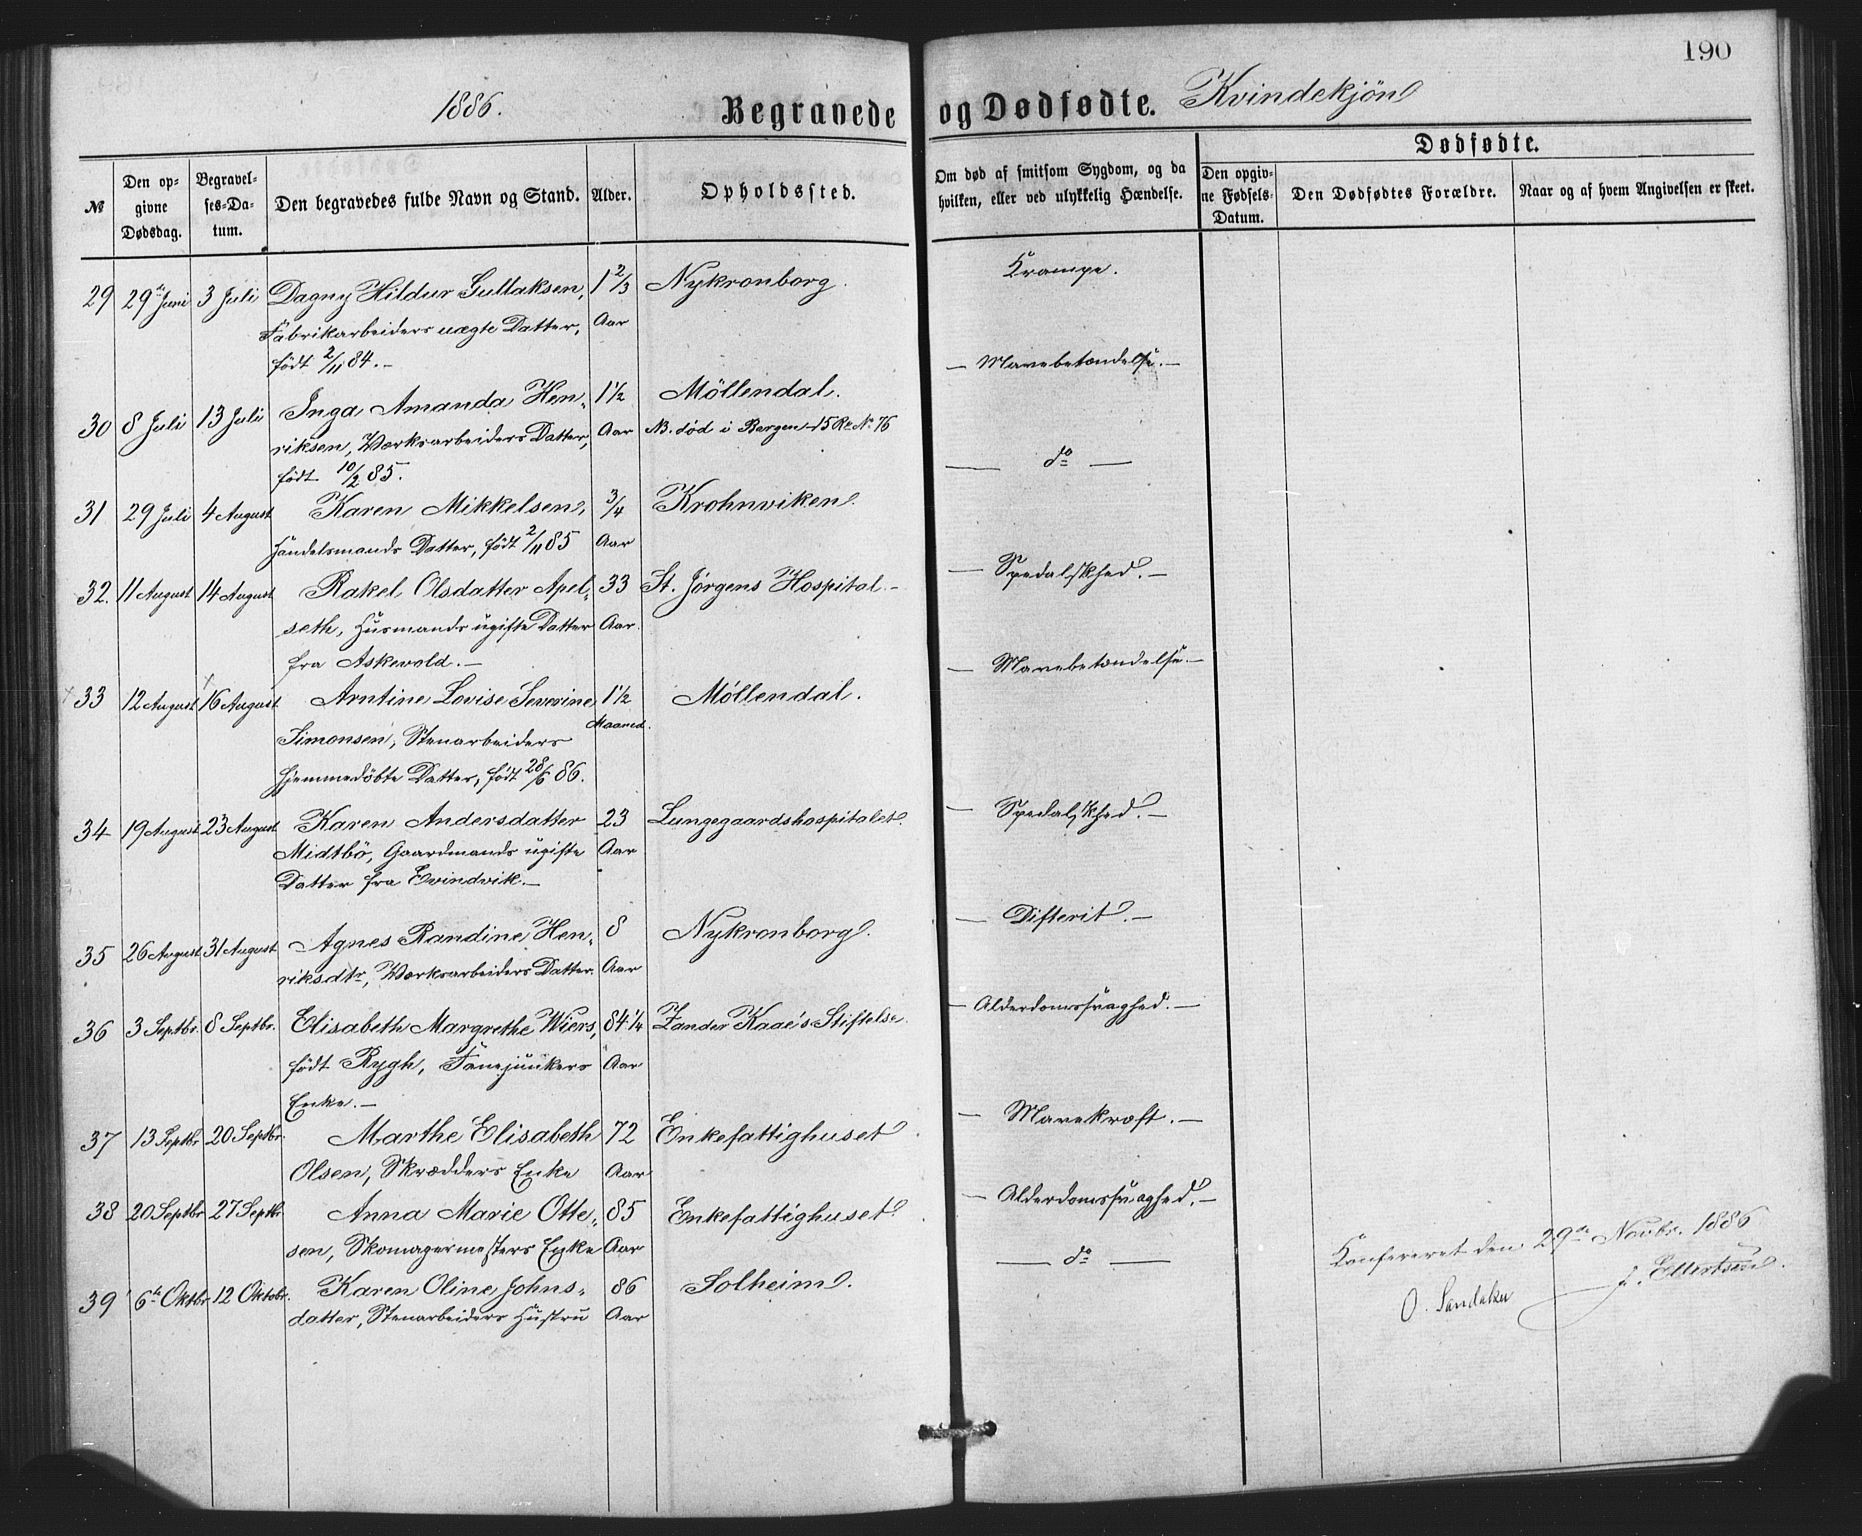 190
1886. Begravede og Dødfødte. Kvindekjön
№
Den opgivne Dødsdag.
Begravelses-Datum.
Den begravedes fulde Navn og Stand.
Alder.
Opholdssted.
Om død af smitsom Sygdom, og da hvilken, eller ved ulykkelig Hændelse.
Dødfødte.
Den opgivne Fødsels-Datum.
Den Dødfødtes Forældre.
Naar og af hvem Angivelsen er skeet.
29 29de Juni 3 Juli Dagny Hildur Gullaksen, 1 2/3 Nykronborg. Krampe.
Fabrikarbeiders uægte Datter, Aar
födt 2/11 84.-
30 8 Juli 13 Juli Inga Amanda Hen- 1½ Möllendal. — Mavebetændelse. —
riksen, Værksarbeiders Datter, Aar NB. död i Bergen 15 Re. № 76
födt 10/2 85.
31 29 Juli 4 August Karen Mikkelsen, 3/4 Krohnviken. — do —
Handelsmands Datter, födt 2/11 85 Aar
32. 11 August 14 August Rakel Olsdatter Apel- 33 St. Jørgens Hospital.- — Spedalskhed. —
seth, Husmands ugifte Datter Aar.
fra Askevold. —
33 12 August 16 August Arntine Lovise Severine 1½ Möllendal. — Mavebetændelse. —
Simonsen, Stenarbeiders Maaned.
hjemmedöbte Datter, födt 28/6 86.
34 19 August 23 August Karen Andersdatter 23 Lungegaardshospitalet. — Spedalskhed. —
Midtbö, Gaardmands ugifte Aar
Datter fra Evindvik. —
35 26 August 31 August Agnes Randine Hen- 8 Nykronborg. — Difterit. —
riksdtr, Værksarbeiders Datter. Aar
36 3 Septbr. 8 Septbr. Elisabeth Margrethe Wiers, 84¼ Zander Kaae's Stiftelse. — Alderdomssvaghed. —
födt Rygh, Fanejunkers Aar
Enke. —
37 13 Septbr 20 Septbr. Marthe Elisabeth 72 Enkefattighuset — Mavekræft. —
Olsen, Skrædders Enke Aar
38 20 Septbr 27 Septbr Anna Marie Otte- 85 Enkefattighuset. — Alderdomssvaghed. —
sen, Skomagermesters Enke Aar
39 6te Oktbr 12 Oktobr. Karen Oline Johns- 86 Solheim. — do —
datter, Stenarbeiders Hustru Aar
Konfereret den 29de Novbr. 1886
J. Ellertsen.
O. Sandaker